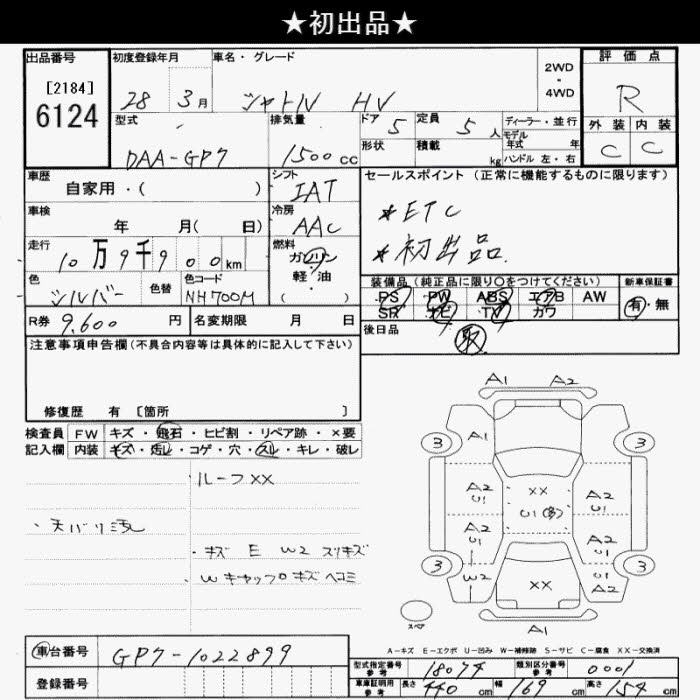 ★初出品★
出品番号
[2184]
6124
初度登録年月
28 3月
車名・グレード
シャトル HV
2WD
・
4WD
評価点
R
外装 内装
C C
型式
DAA-GP7
排気量
1500cc
ドア 5
定員 5人
形状
積載 kg
ディーラー・並行
モデル
年式 年
ハンドル 左・右
車歴
自家用・( )
シフト
IAT
車検
年 月( 日)
冷房
AAC
走行
10万9千900km
燃料
ガソリン
軽・油
( )
色
シルバー
色替
色コード
NH700M
R券 9,600円
名変期限 月 日
セールスポイント(正常に機能するものに限ります)
*ETC
*初出品.
装備品(純正品に限り○をつけてください)
PS PW ABS エアB AW
SR ナビ TV カワ
新車保証書
有・無
後日品
取
注意事項申告欄(不具合内容等は具体的に記入して下さい)
修復歴 有 [箇所 ]
検査員
記入欄
FW キズ・飛石・ヒビ割・リペア跡・×要
内装 キズ・汚レ・コゲ・穴・スレ・キレ・破レ
・ルーフXX
・天バリ汚レ
・キズ E W2 スリキズ
・Wキャップ キズ ヘコミ
A1 A2
3 A1 3
A2 U1 XX A2 U1
U1(多)
A2 U1 A2 U1
3 W2 XX U1 A2 3
スペア
A1
A-キズ E-エクボ U-凹み W-補修跡 S-サビ C-腐食 XX-交換済
車台番号
GP7-1022899
登録番号
型式指定番号
参考
18074
類別区分番号
参考
0001
車庫証明用
参考
長さ 440cm 幅 169cm 高さ 154cm